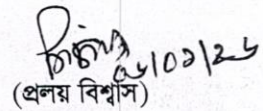 ০৬/০১/২৬
(প্রলয় বিশ্বাস)